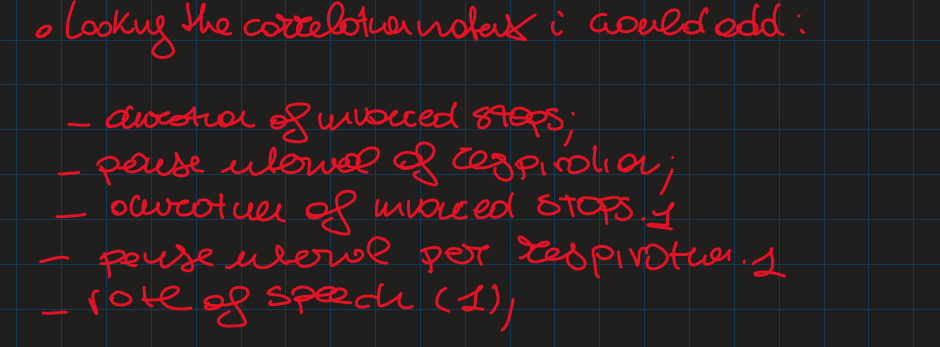 • Looking the correlation matrix i would add:
- duration of unvoiced stops;
- pause interval of respiration;
- duration of unvoiced stops.1
- pause interval per respiration.1
- rate of speech (1),